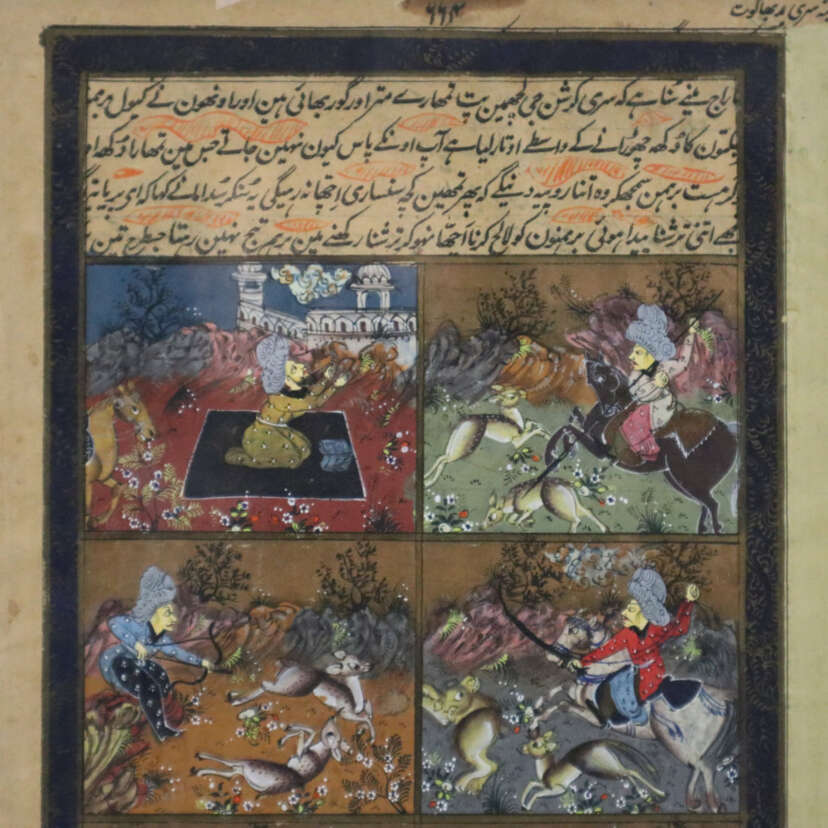 ۶۶۴
سری بھاگوت
راج مینے سُنا ہے کہ سری کرشن جی لچھمین پت تمھارے متر اور گور بھائی ہین اور اونھون نے کیول برہمن
بھگتون کا دُکھ چھوڑانے کے واسطے اوتار لیا ہے آپ اونکے پاس کیون نہین جاتے جس مین تمھارا دُکھ
گرہست برہمن سمجھکر وہ اتنا روپیہ دینگے کہ پھر تمھین کچھ سنساری اچھا نہ رہیگی یہ سُنکر سُداما نے کہا کہ ای پریا
مجھے اتنی ترشنا پیدا ہوئی برہمنون کو لالچ کرنا اچھا نہین ہو کہ ترشنا رکھنے مین برہم تیج نہین رہتا جسطرح تین